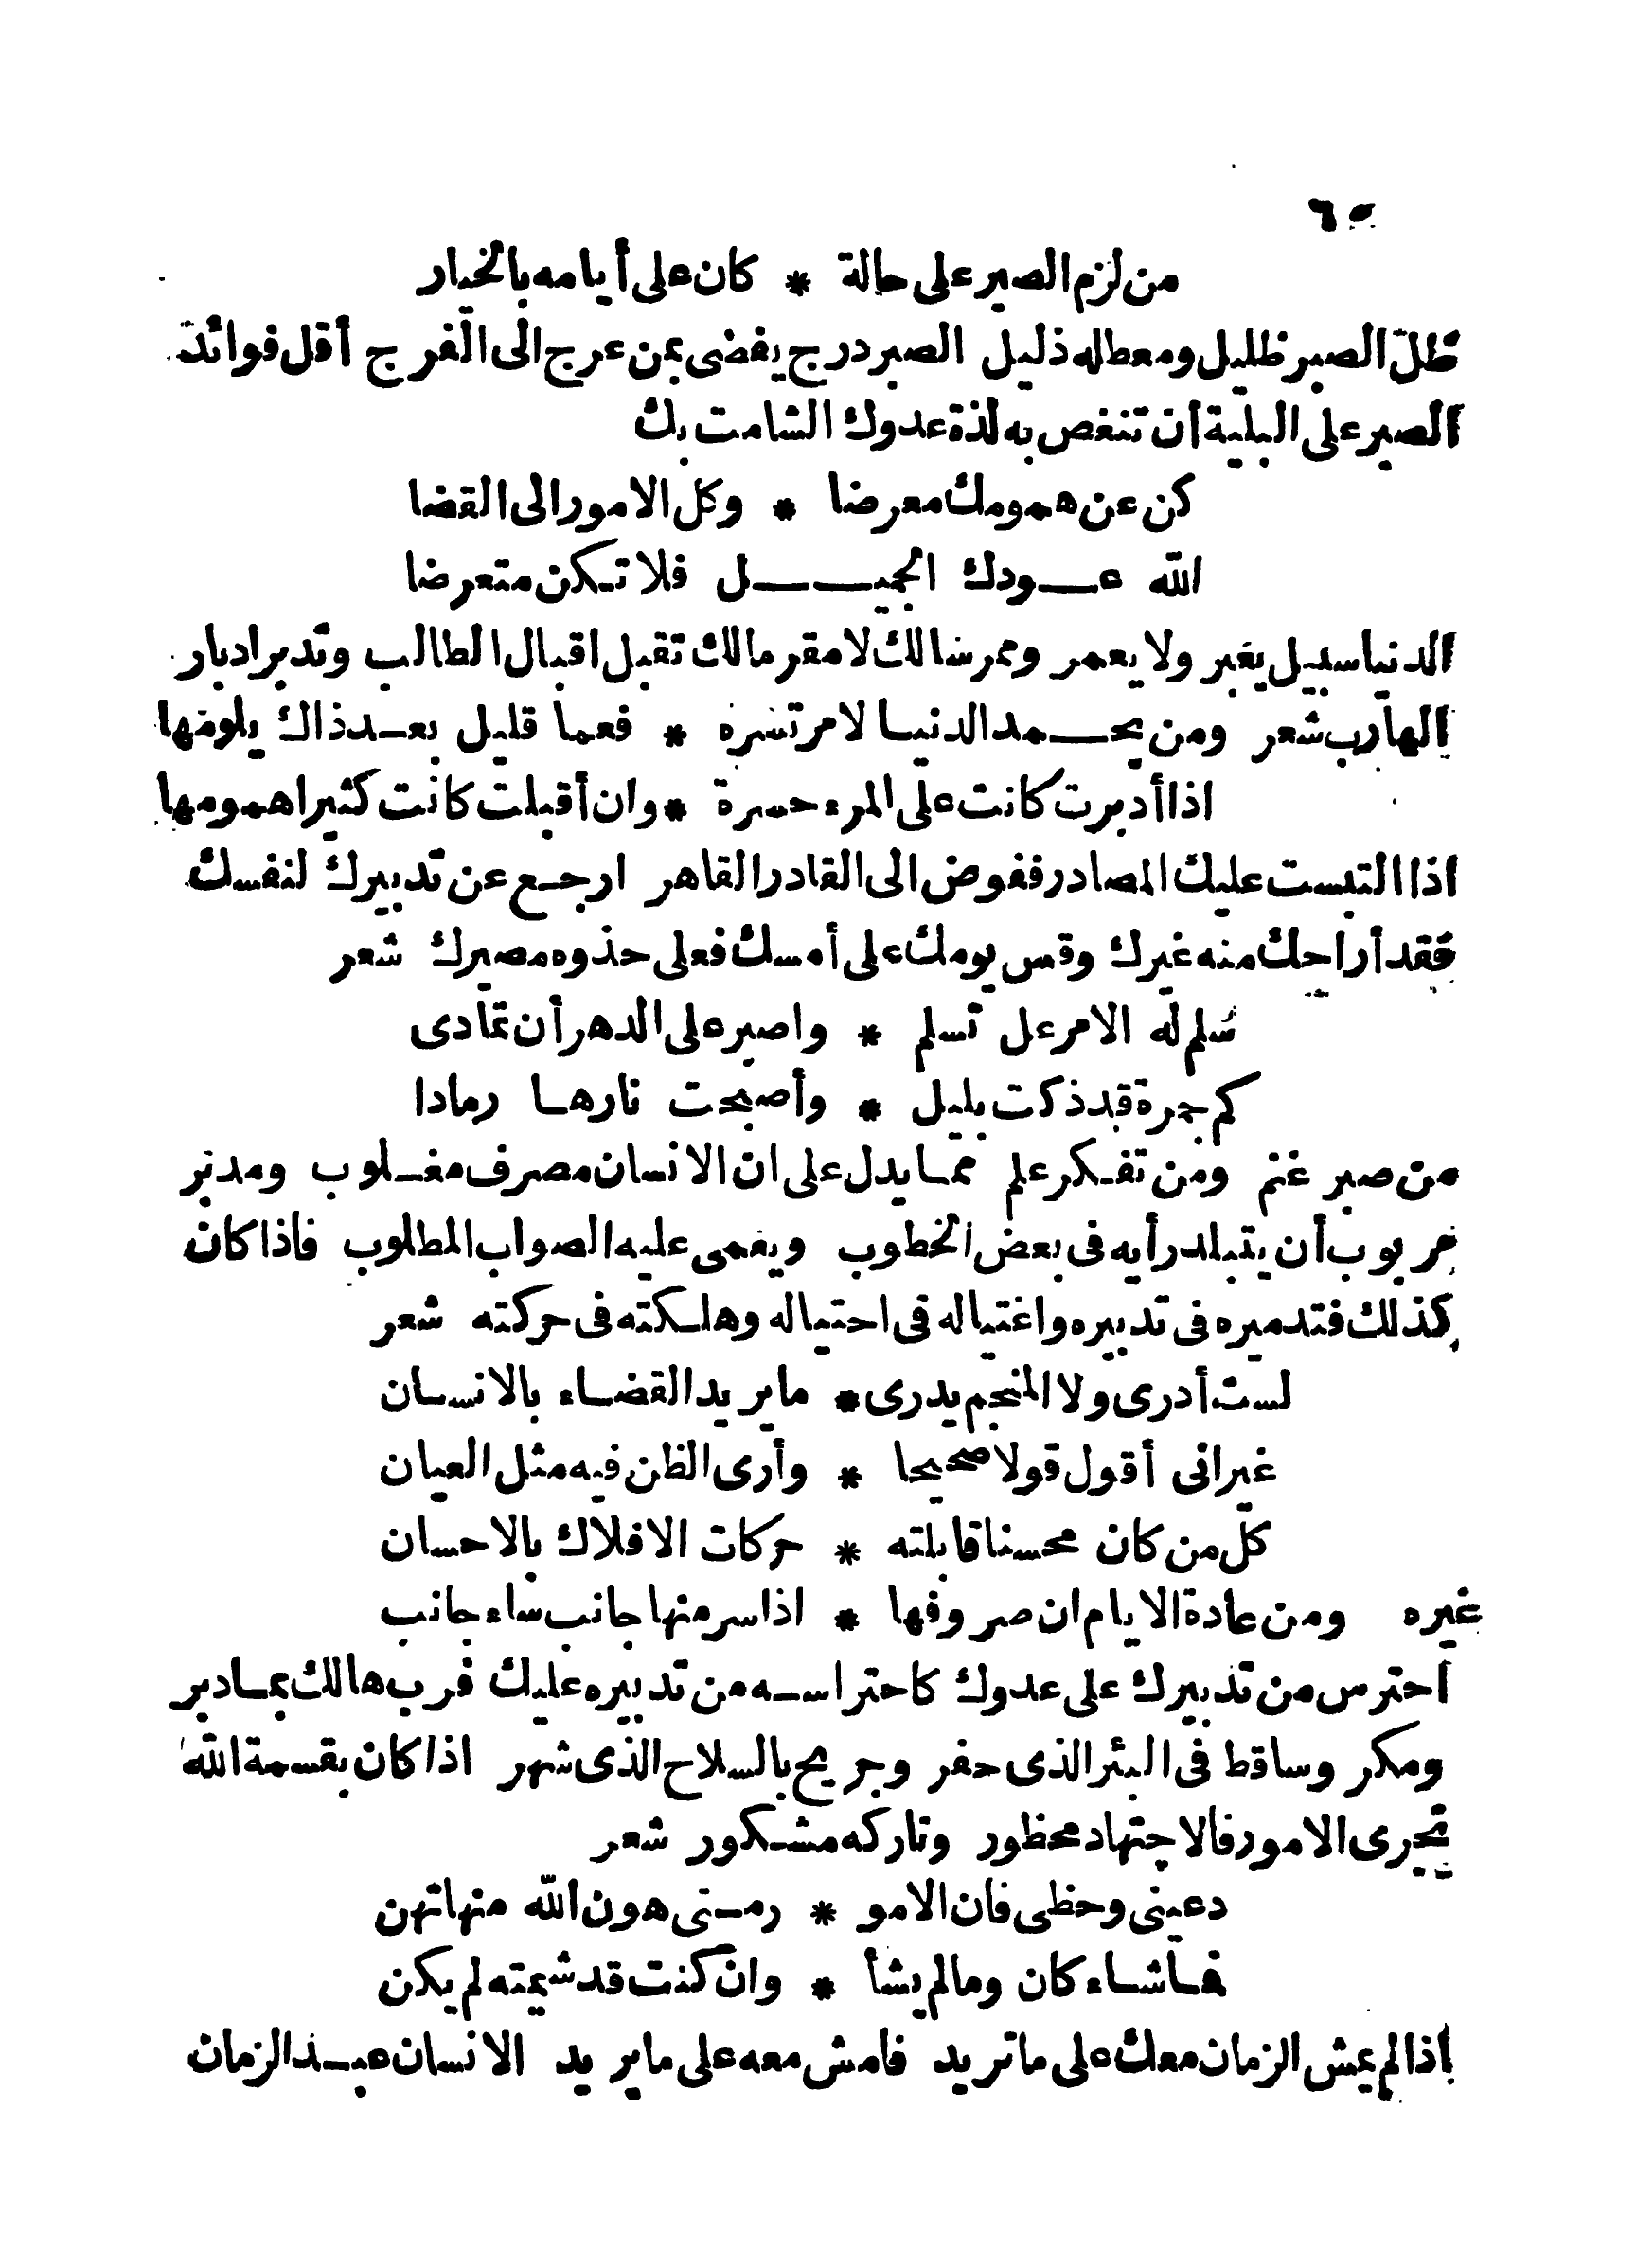 ٦٥
من لزم الصبر على حالة * كان على أيامه بالخيار
ظل الصبر ظليل ومعطله ذليل الصبر درج يفضى بمن عرج الى الفرج أقل فوائد
الصبر على البلية أن تنغص به لذة عدوك الشامت بك
كن عن همومك معرضا * وكل الامور الى القضا
الله عـــودك الجميـــــل فلا تكن متعرضا
الدنيا سبيل يعبر ولا يعمر وممر سالك لا مقر مالك تقبل اقبال الطالب وتدبر ادبار
الهارب شعر ومن يحـــمد الدنيا لامر تسره * فعما قليل بعــد ذاك يلومها
اذا أدبرت كانت على المرء حسرة * وان أقبلت كانت كثيرا همومها
اذا التبست عليك المصادر ففوض الى القادر القاهر ارجع عن تدبيرك لنفسك
فقد أراحك منه غيرك وقس يومك على أمسك فعلى حذوه مصيرك شعر
سلم له الامر عل تسلم * واصبر على الدهر أن تمادى
كم جمرة قد ذكت بليل * وأصبحت نارها رمادا
من صبر غنم ومن تفكر علم ممـا يدل على ان الانسان مصرف مغــلوب ومدبر
مربوب أن يتبلد رأيه فى بعض الخطوب ويغمى عليه الصواب المطلوب فاذا كان
كذلك فتدميره فى تدبيره واغتياله فى احتياله وهلكته فى حركته شعر
لست أدرى ولا المنجم يدرى * ما يريد القضاء بالانسان
غير انى أقول قولا صحيحا * وأرى الظن فيه مثل العيان
كل من كان محسنا قابلته * حركات الافلاك بالاحسان
غيره ومن عادة الايام ان صروفها * اذا سر منها جانب ساء جانب
احترس من تدبيرك على عدوك كاحتراســه من تدبيره عليك فرب هالك بمـا دبر
ومكر وساقط فى البئر الذى حفر وجريح بالسلاح الذى شهر اذا كان بقسمة الله
تجرى الامور فالاجتهاد محظور وتاركه مشكور شعر
دعينى وحظى فان الامو * رمــتى هون الله منها تهن
فمـا شاء كان وما لم يشأ * وان كنت قد شيمته لم يكن
اذا لم يمش الزمان معك على ما تريد فامش معه على ما يريد الانسان عبــد الزمان